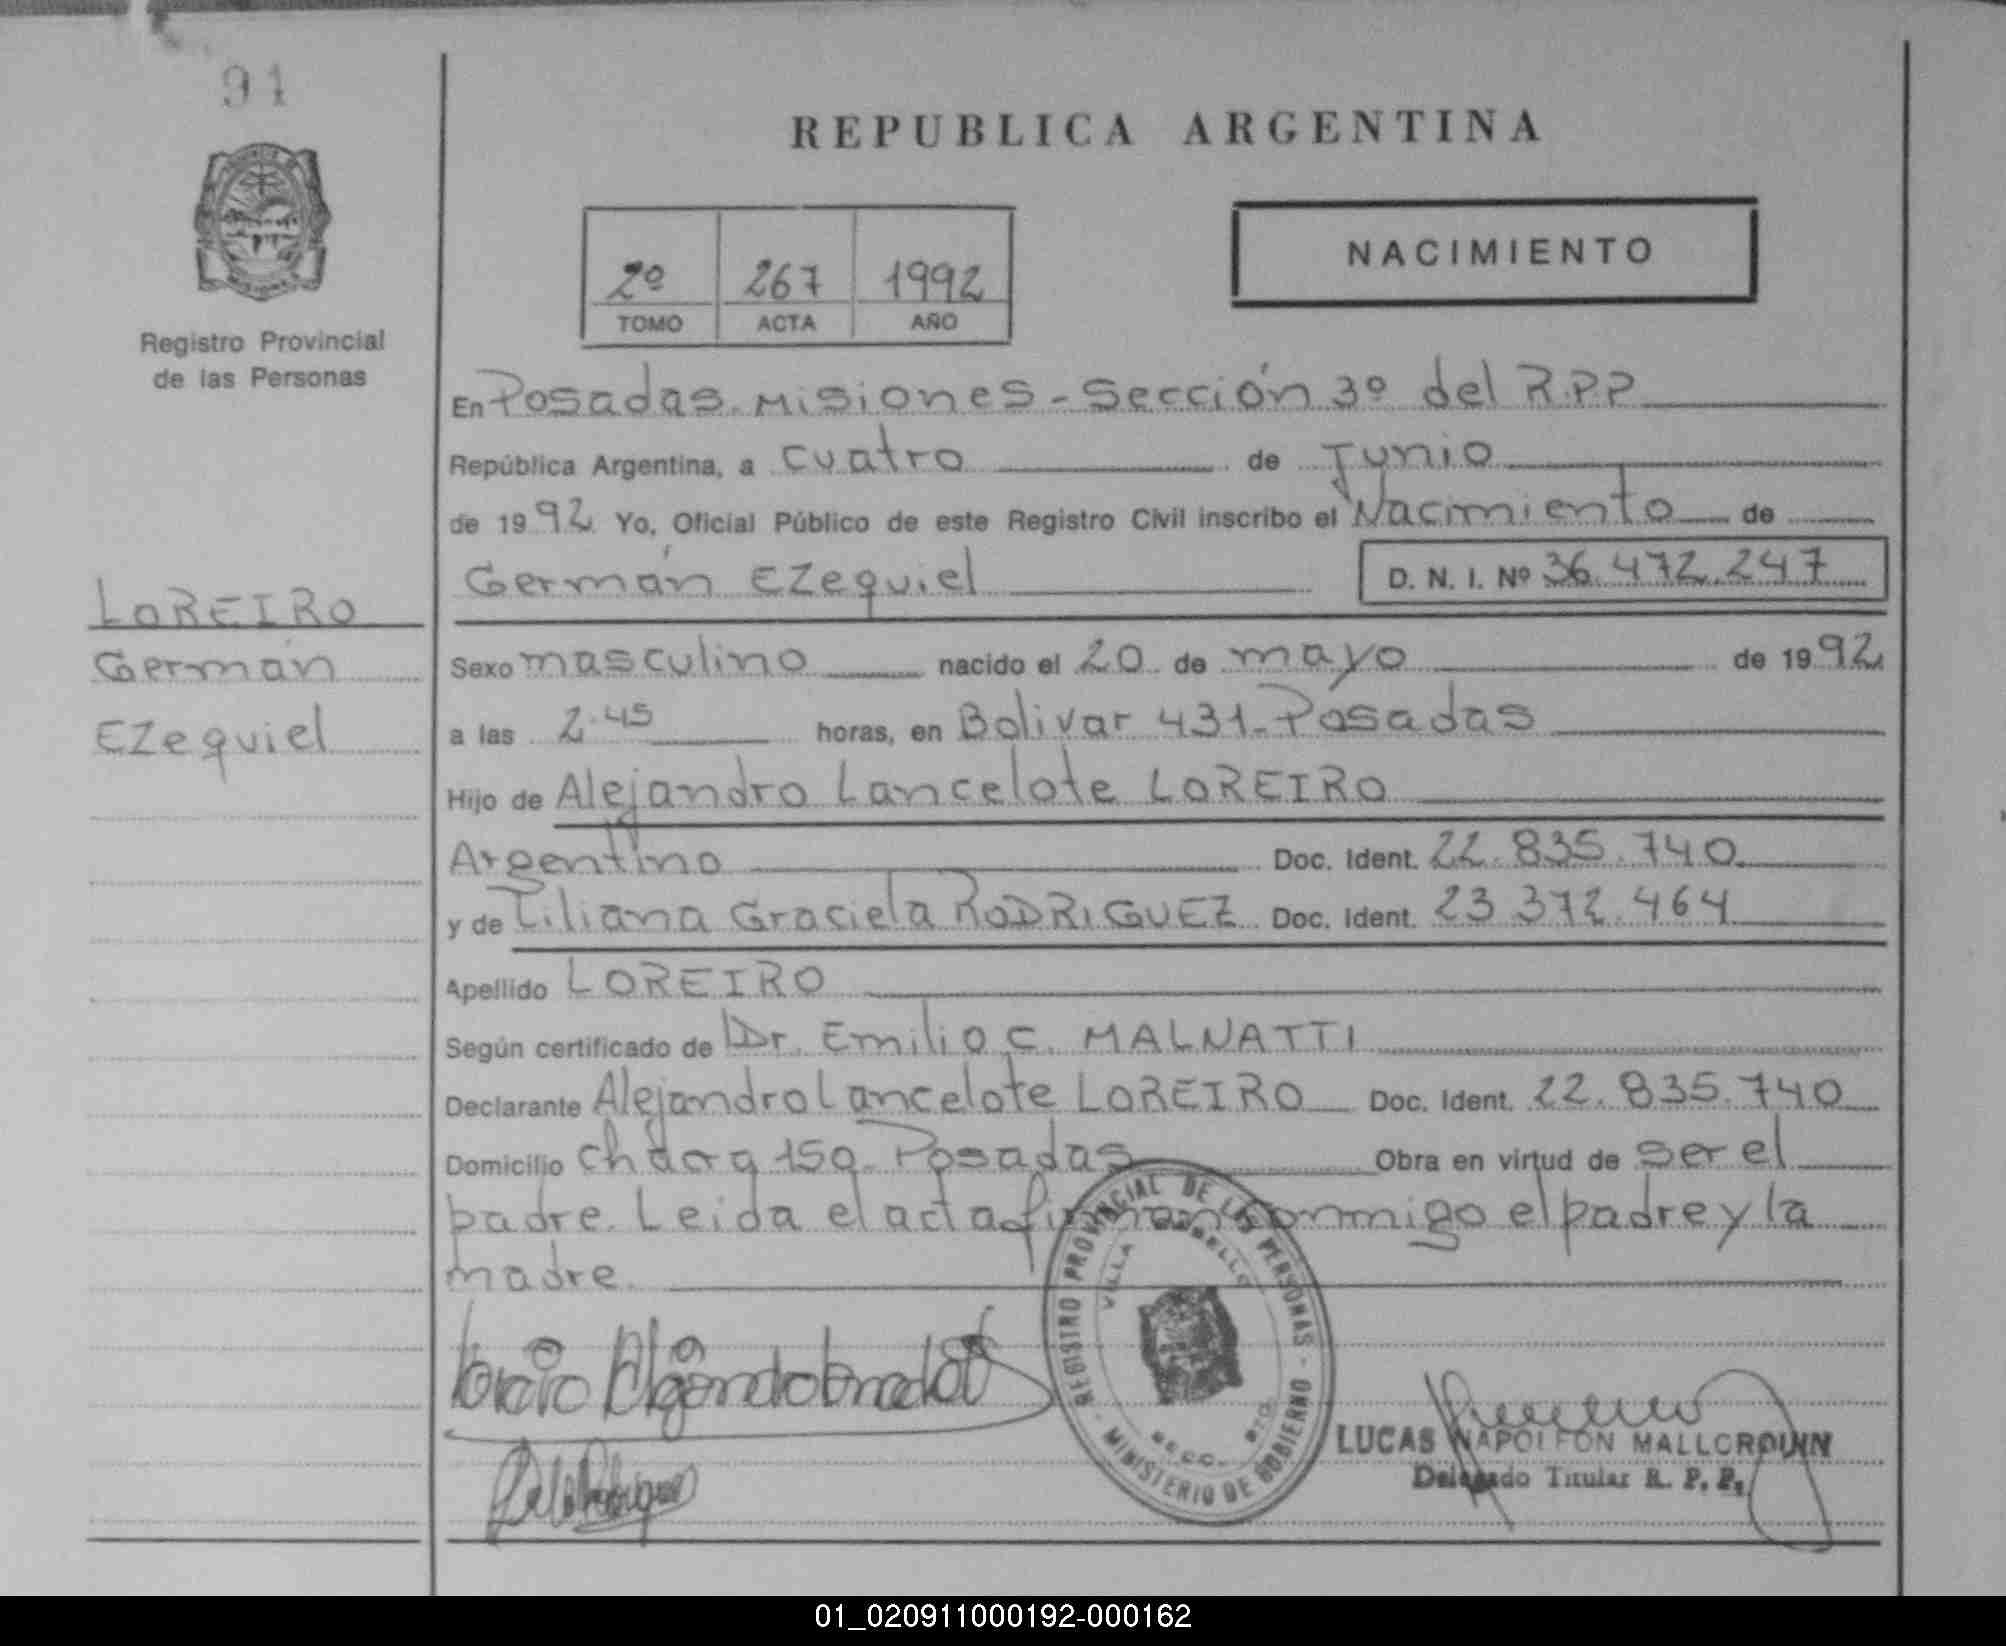 91
REPUBLICA ARGENTINA
2º 267 1992
TOMO ACTA AÑO
NACIMIENTO
Registro Provincial
de las Personas
En Posadas. Misiones - Sección 3º del R.P.P
República Argentina, a cuatro de Junio
de 1992 Yo, Oficial Público de este Registro Civil inscribo el Nacimiento de
Germán Ezequiel D. N. I. Nº 36.472.247
LOREIRO
Germán
Ezequiel
Sexo masculino nacido el 20 de mayo de 1992
a las 2.45 horas, en Bolivar 431 - Posadas
Hijo de Alejandro Lancelote LOREIRO
Argentino Doc. Ident. 22.835.740
y de Liliana Graciela RODRIGUEZ Doc. Ident. 23.372.464
Apellido LOREIRO
Según certificado de Dr. Emilio C. MALNATTI
Declarante Alejandro Lancelote LOREIRO Doc. Ident. 22.835.740
Domicilio Posadas Obra en virtud de ser el
padre. Leida el acta firman conmigo el padre y la
madre.
REGISTRO PROVINCIAL DE LAS PERSONAS - MINISTERIO DE GOBIERNO -
VILLA
LUCAS NAPOLEON
Delegado Titular R. P. P.
01_020911000192-000162